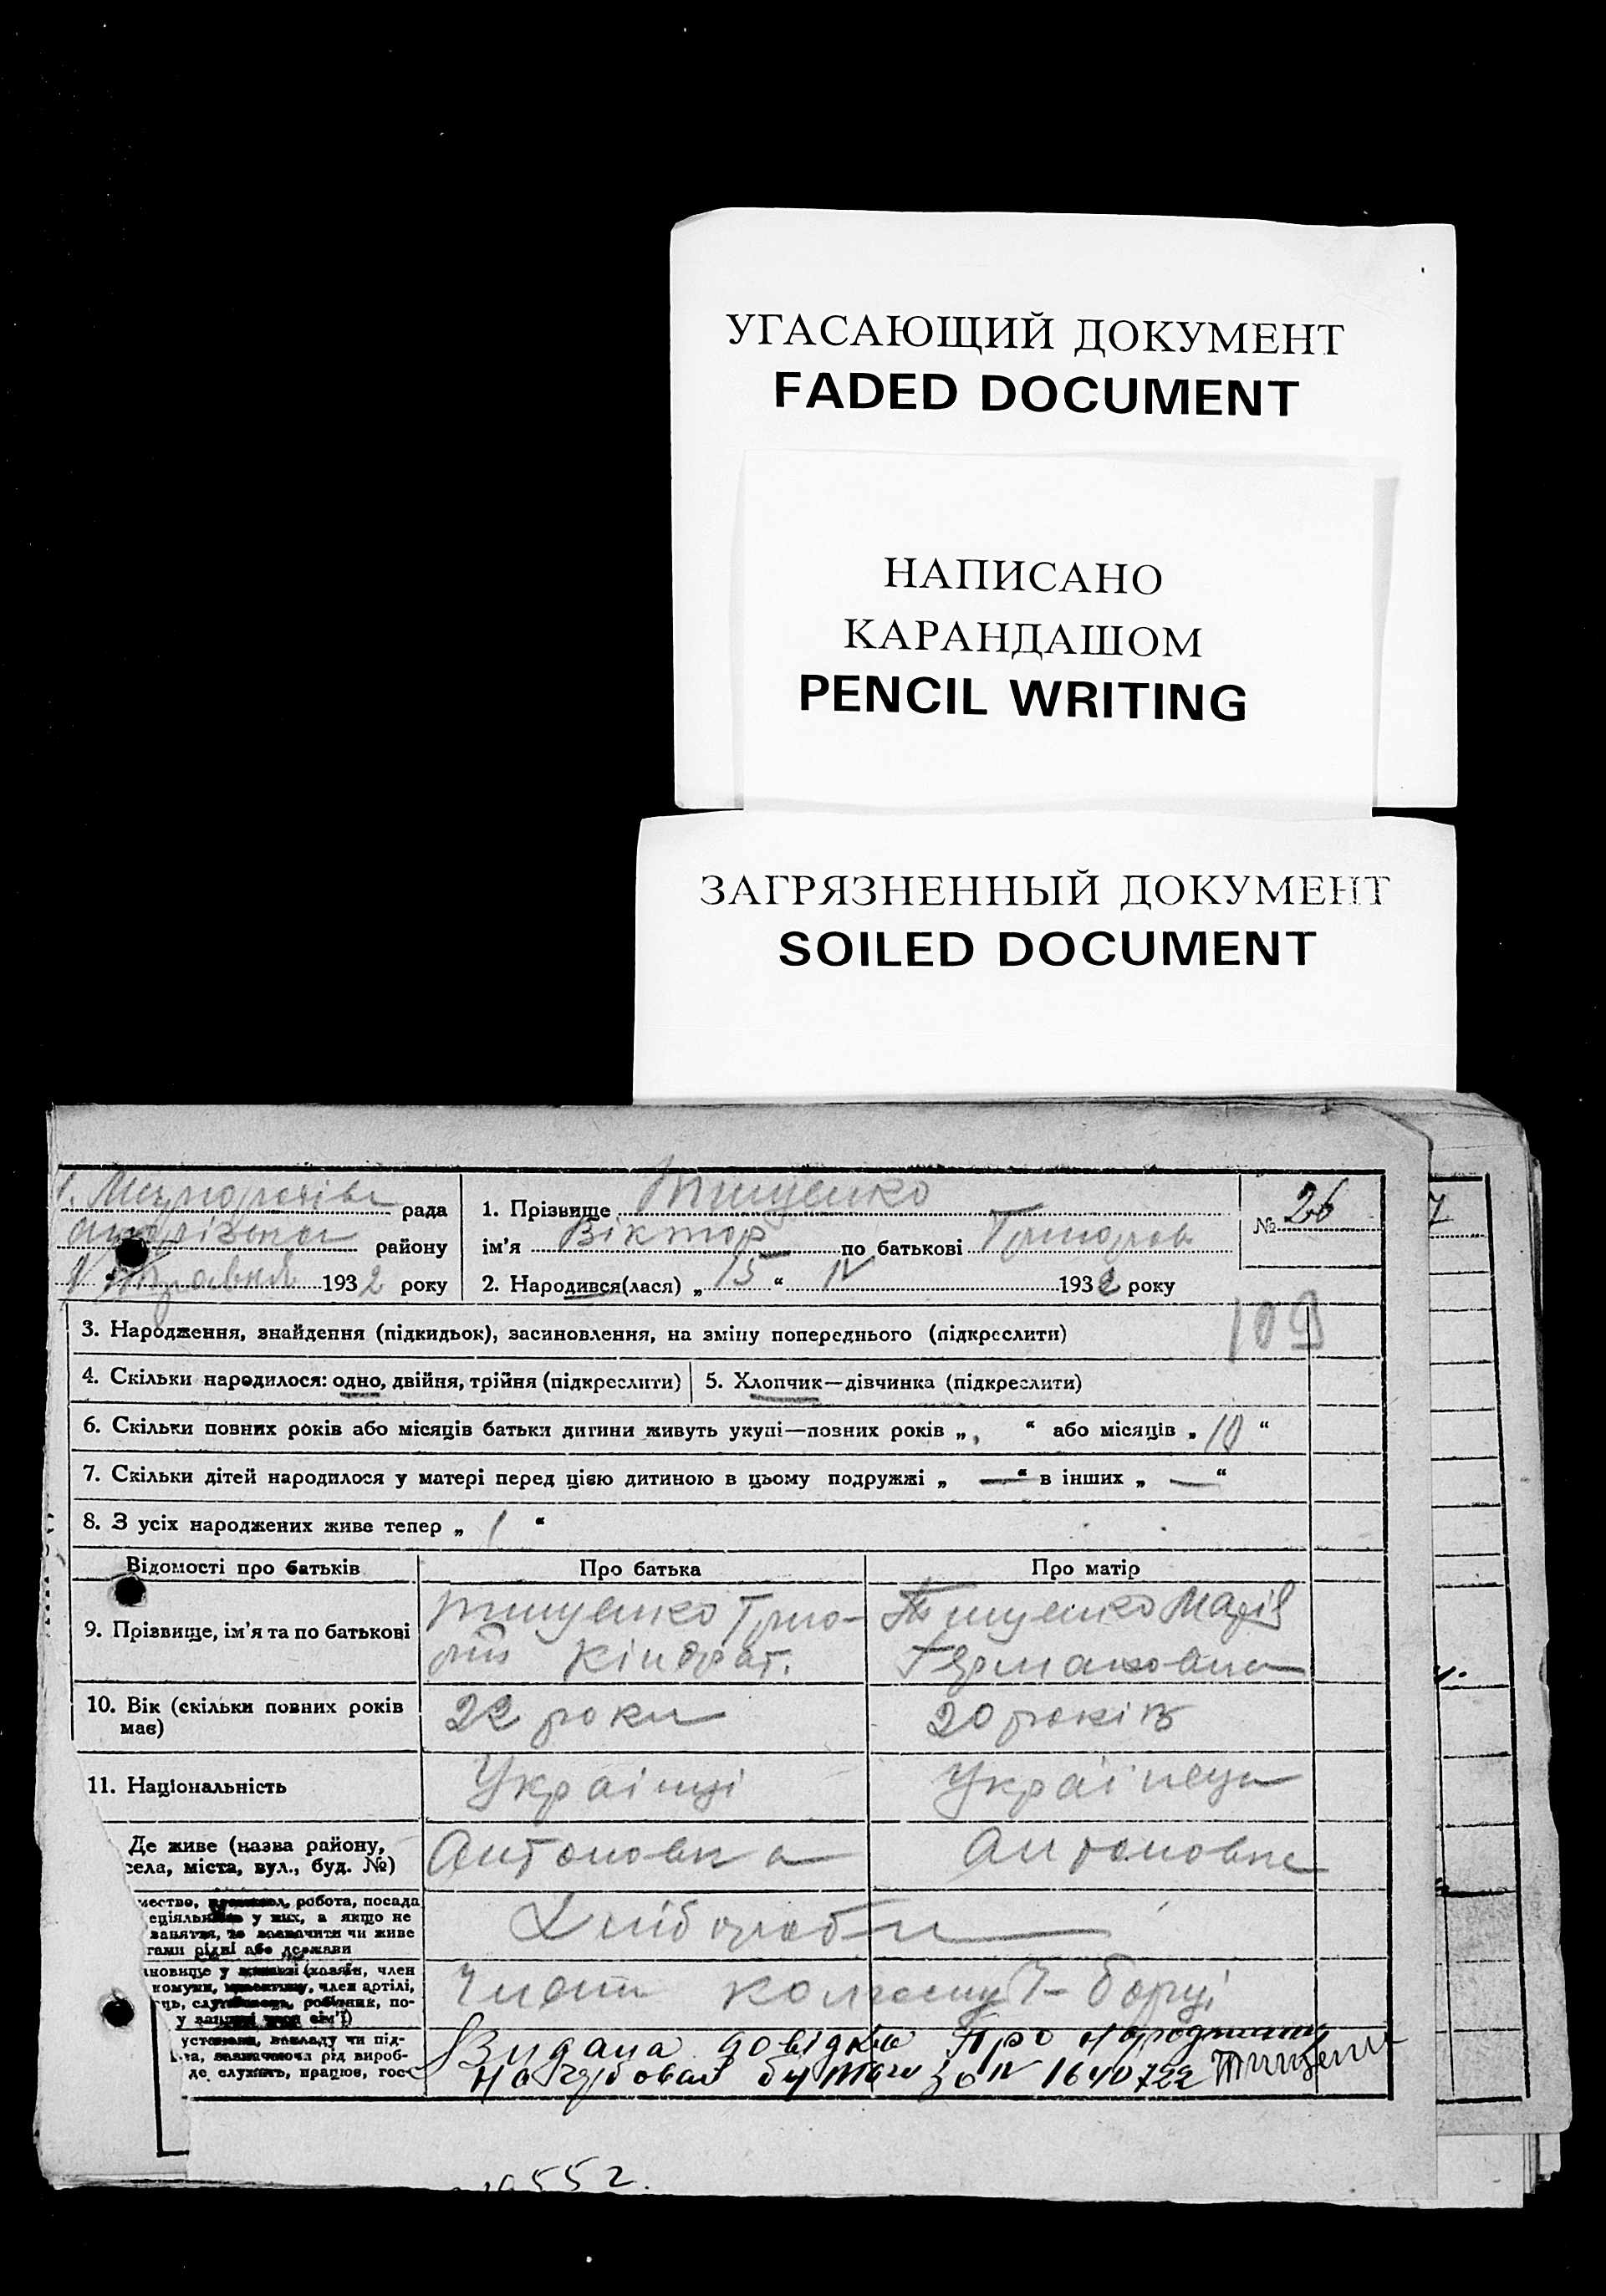 УГАСАЮЩИЙ ДОКУМЕНТ
FADED DOCUMENT
НАПИСАНО
КАРАНДАШОМ
PENCIL WRITING
ЗАГРЯЗНЕННЫЙ ДОКУМЕНТ
SOILED DOCUMENT
рада
району
193 2 року
1. Прізвище Тищенко
ім'я Віктор по батькові Григоров
2. Народився(лася) „ 15 “ IV 193 2 року
№ 26
109
3. Народження, знайдення (підкидьок), засиновлення, на зміну попереднього (підкреслити)
4. Скільки народилося: одно, двійня, трійня (підкреслити)
5. Хлопчик—дівчинка (підкреслити)
6. Скільки повних років або місяців батьки дитини живуть укупі—повних років „ “ або місяців „ 10 “
7. Скільки дітей народилося у матері перед цією дитиною в цьому подружжі „ — “ в інших „ — “
8. З усіх народжених живе тепер „ 1 “
Відомості про батьків
Про батька
Про матір
9. Прізвище, ім'я та по батькові
Тищенко Григо-
рій Кіндрат.
Тищенко Марія
10. Вік (скільки повних років
має)
22 роки
20 років
11. Національність
Українці
Де живе (назва району,
села, міста, вул., буд. №)
Антоновка
Антоновка
робота, посада
у них, а якщо не
заняття, то зазначити чи живе
рідні або держави
член
член артілі,
Хлібороби
Член колгоспу
чи під-
рід вироб-
де служить, працює, гос-
Видана довідка про народження
1640722
552.